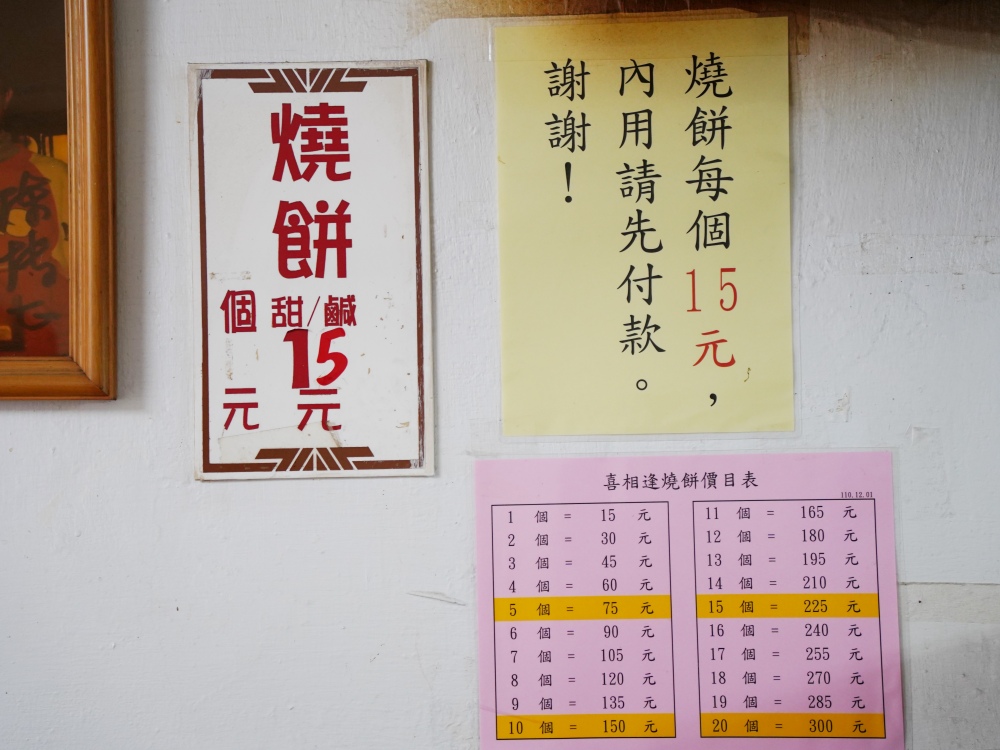 燒餅
甜/鹹
15
元
個
元
燒餅每個15元，
內用請先付款。
謝謝！
喜相逢燒餅價目表
110.12.01
1 個 = 15 元
2 個 = 30 元
3 個 = 45 元
4 個 = 60 元
5 個 = 75 元
6 個 = 90 元
7 個 = 105 元
8 個 = 120 元
9 個 = 135 元
10 個 = 150 元
11 個 = 165 元
12 個 = 180 元
13 個 = 195 元
14 個 = 210 元
15 個 = 225 元
16 個 = 240 元
17 個 = 255 元
18 個 = 270 元
19 個 = 285 元
20 個 = 300 元